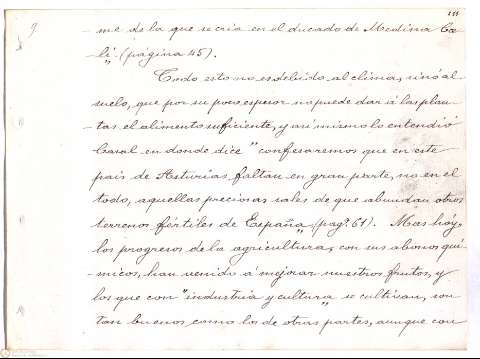 9
me de la que se cria en el ducado de Medina Cœ-
li" (página 45).
Todo esto no es debido al clima, sinó al
suelo, que por su poco espesor no puede dar á las plan-
tas el alimento suficiente, y así mismo lo entendió
Casal en donde dice "confesaremos que en este
pais de Asturias faltan en gran parte, no en el
todo, aquellas preciosas sales de que abundan otros
terrenos fértiles de España" (pagª. 61). Mas hóy,
los progresos de la agricultura, con sus abonos quí-
micos, han venido á mejorar nuestros frutos, y
los que con "industria y cultura" se cultivan, son
tan buenos como los de otras partes, aunque con